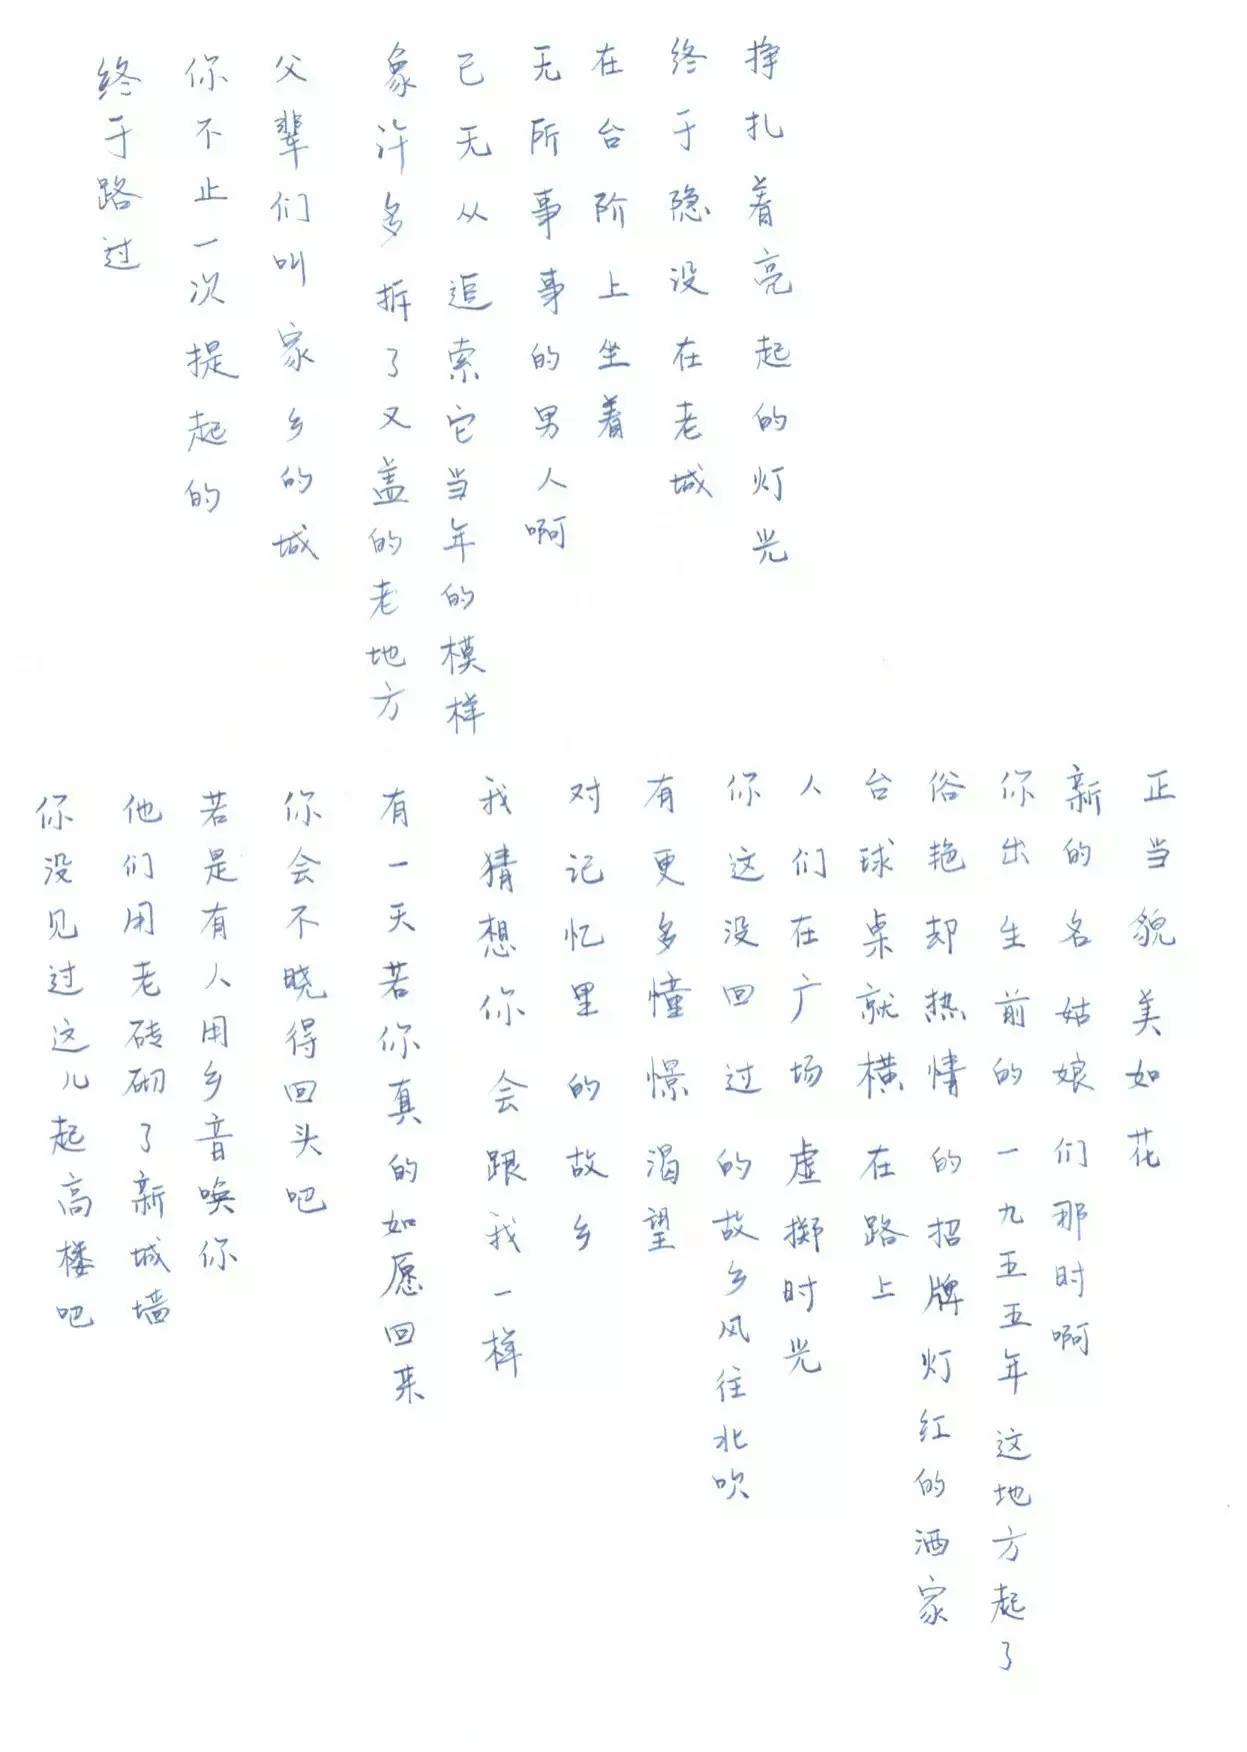 终于路过
你不止一次提起的
父辈们叫家乡的城
象许多拆了又盖的老地方
已无从追索它当年的模样
无所事事的男人啊
在台阶上坐着
终于隐没在老城
挣扎着亮起的灯光
你没见过这儿起高楼吧
他们用老砖砌了新城墙
若是有人用乡音唤你
你会不晓得回头吧
有一天若你真的如愿回来
我猜想你会跟我一样
对记忆里的故乡
有更多憧憬渴望
你这没回过的故乡风往北吹
人们在广场虚掷时光
台球桌就横在路上
俗艳却热情的招牌灯红的酒家
你出生前的一九五五年这地方起了
新的名姑娘们那时啊
正当貌美如花